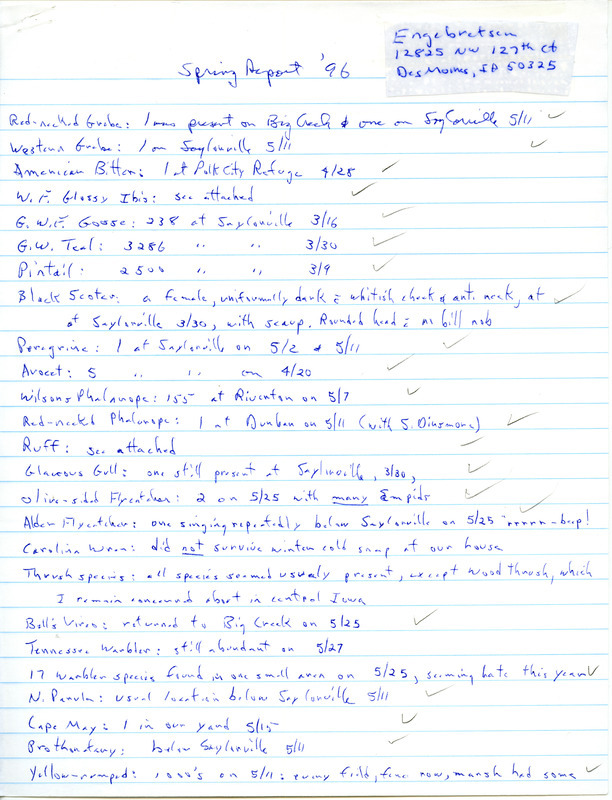 Spring Report '96
Engebretsen
12825 NW 127th Ct
Des Moines, IA 50325
Red-necked Grebe: 1 was present on Big Creek & one on Saylorville 5/11 ✓
Western Grebe: 1 on Saylorville 5/11 ✓
American Bittern: 1 at Polk City Refuge 4/28 ✓
W. F. Glossy Ibis: see attached ✓
G. W. F. Goose: 238 at Saylorville 3/16 ✓
G.W. Teal: 3286 " " 3/30 ✓
Pintail: 2500 " " 3/9 ✓
Black Scoter: a female, uniformally dark c̄ whitish cheek & ant. neck, at ✓
at Saylorville 3/30, with scaup. Rounded head c̄ no bill nob
Peregrine: 1 at Saylorville on 5/2 & 5/11 ✓
Avocet: 5 " " on 4/20 ✓
Wilsons Phalarope: 155 at Riverton on 5/7 ✓
Red-necked Phalarope: 1 at Dunbar on 5/11 (with S. Dinsmore) ✓
Ruff: see attached ✓
Glaucous Gull: one still present at Saylorville, 3/30, ✓
Olive-sided Flycatcher: 2 on 5/25 with many Empids ✓
Alder Flycatcher: one singing repeatedly below Saylorville on 5/25 "rrrrr-beep!
Carolina Wren: did not survive winter cold snap at our house
Thrush species: all species seemed usualy present, except Wood thrush, which
I remain concerned about in central Iowa
Bell's Vireo: returned to Big Creek on 5/25 ✓
Tennessee Warbler: still abundant on 5/27
17 Warbler species found in one small area on 5/25, seeming late this year ✓
N. Parula: usual location below Saylorville 5/11 ✓
Cape May: 1 in our yard 5/15 ✓
Prothonotary: below Saylorville 5/11 ✓
Yellow-rumped: 1000's on 5/11: every field, fence row, marsh had some ✓